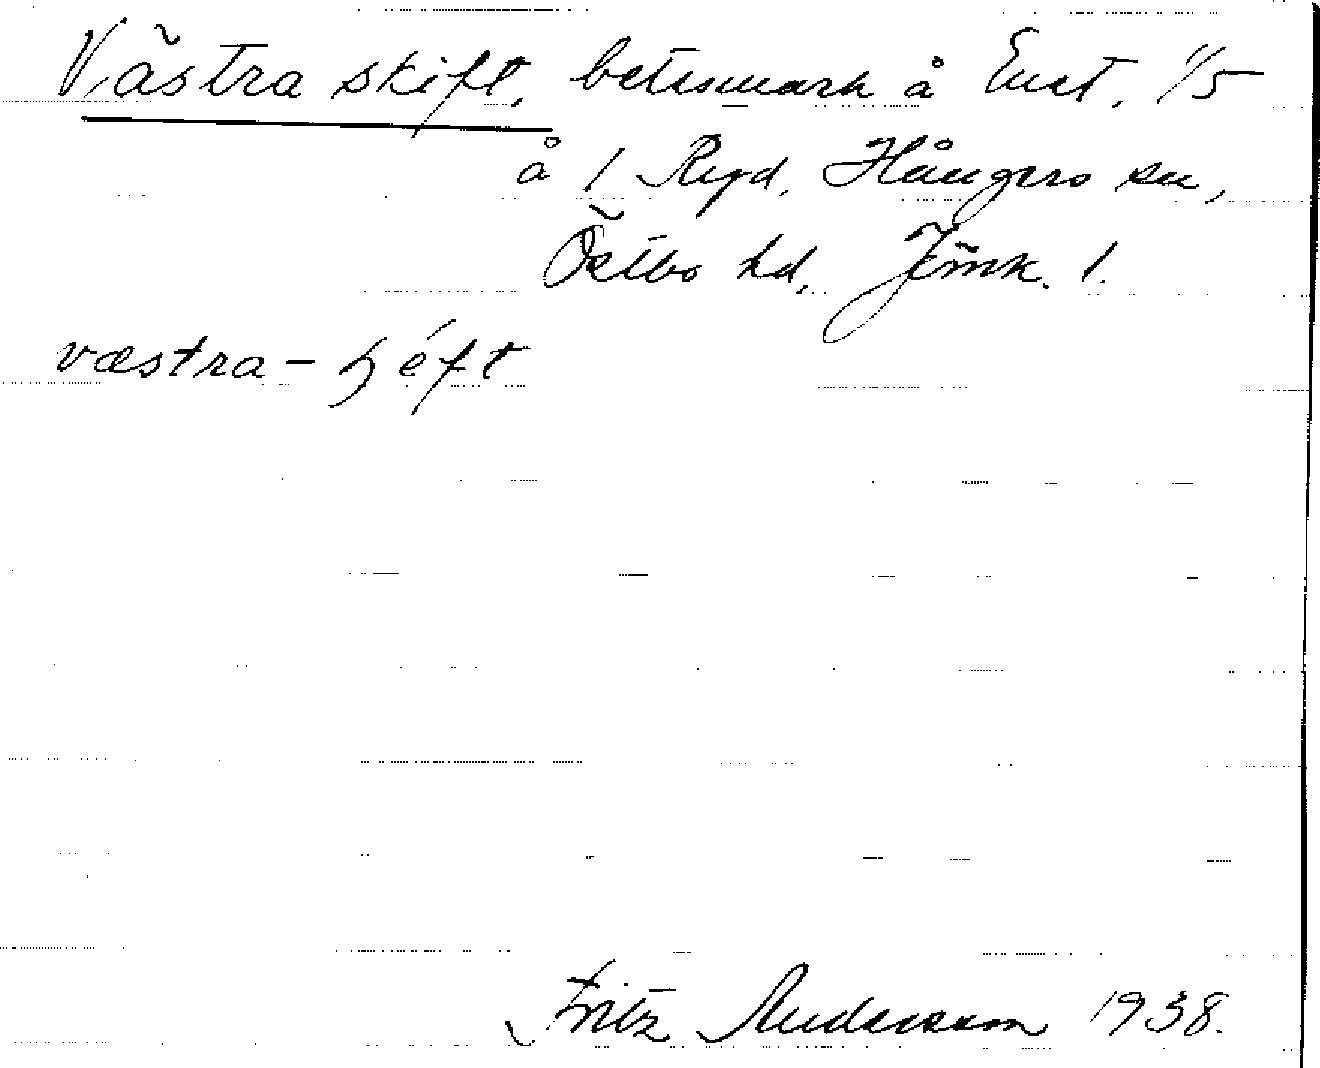 Västra skift, betesmark å Enet. 1/5
å 1 Ryd, Hångers sn,
Östbo hd, Jönk. l.
væstra - ɧéft
Fritz Andersson 1938.